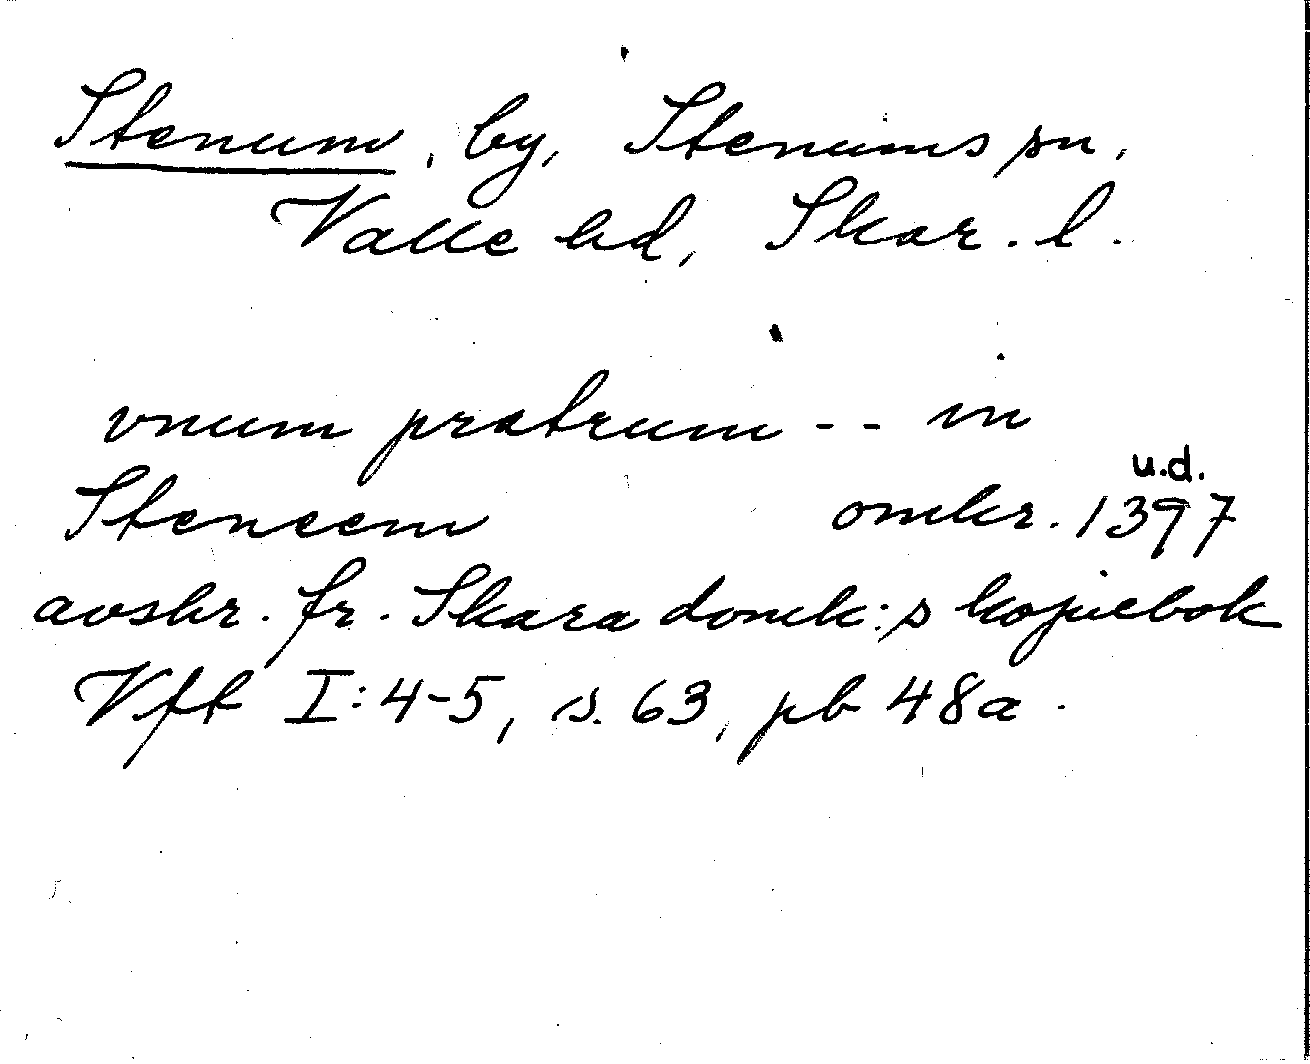 Stenum, by, Stenums sn,
Valle hd, Skar. l.
vnum pratrum -- in
u.d.
Steneem omkr. 1397
avskr. fr. Skara domk:s kopiebok
Vft I:4-5, s. 63, pb 48a.